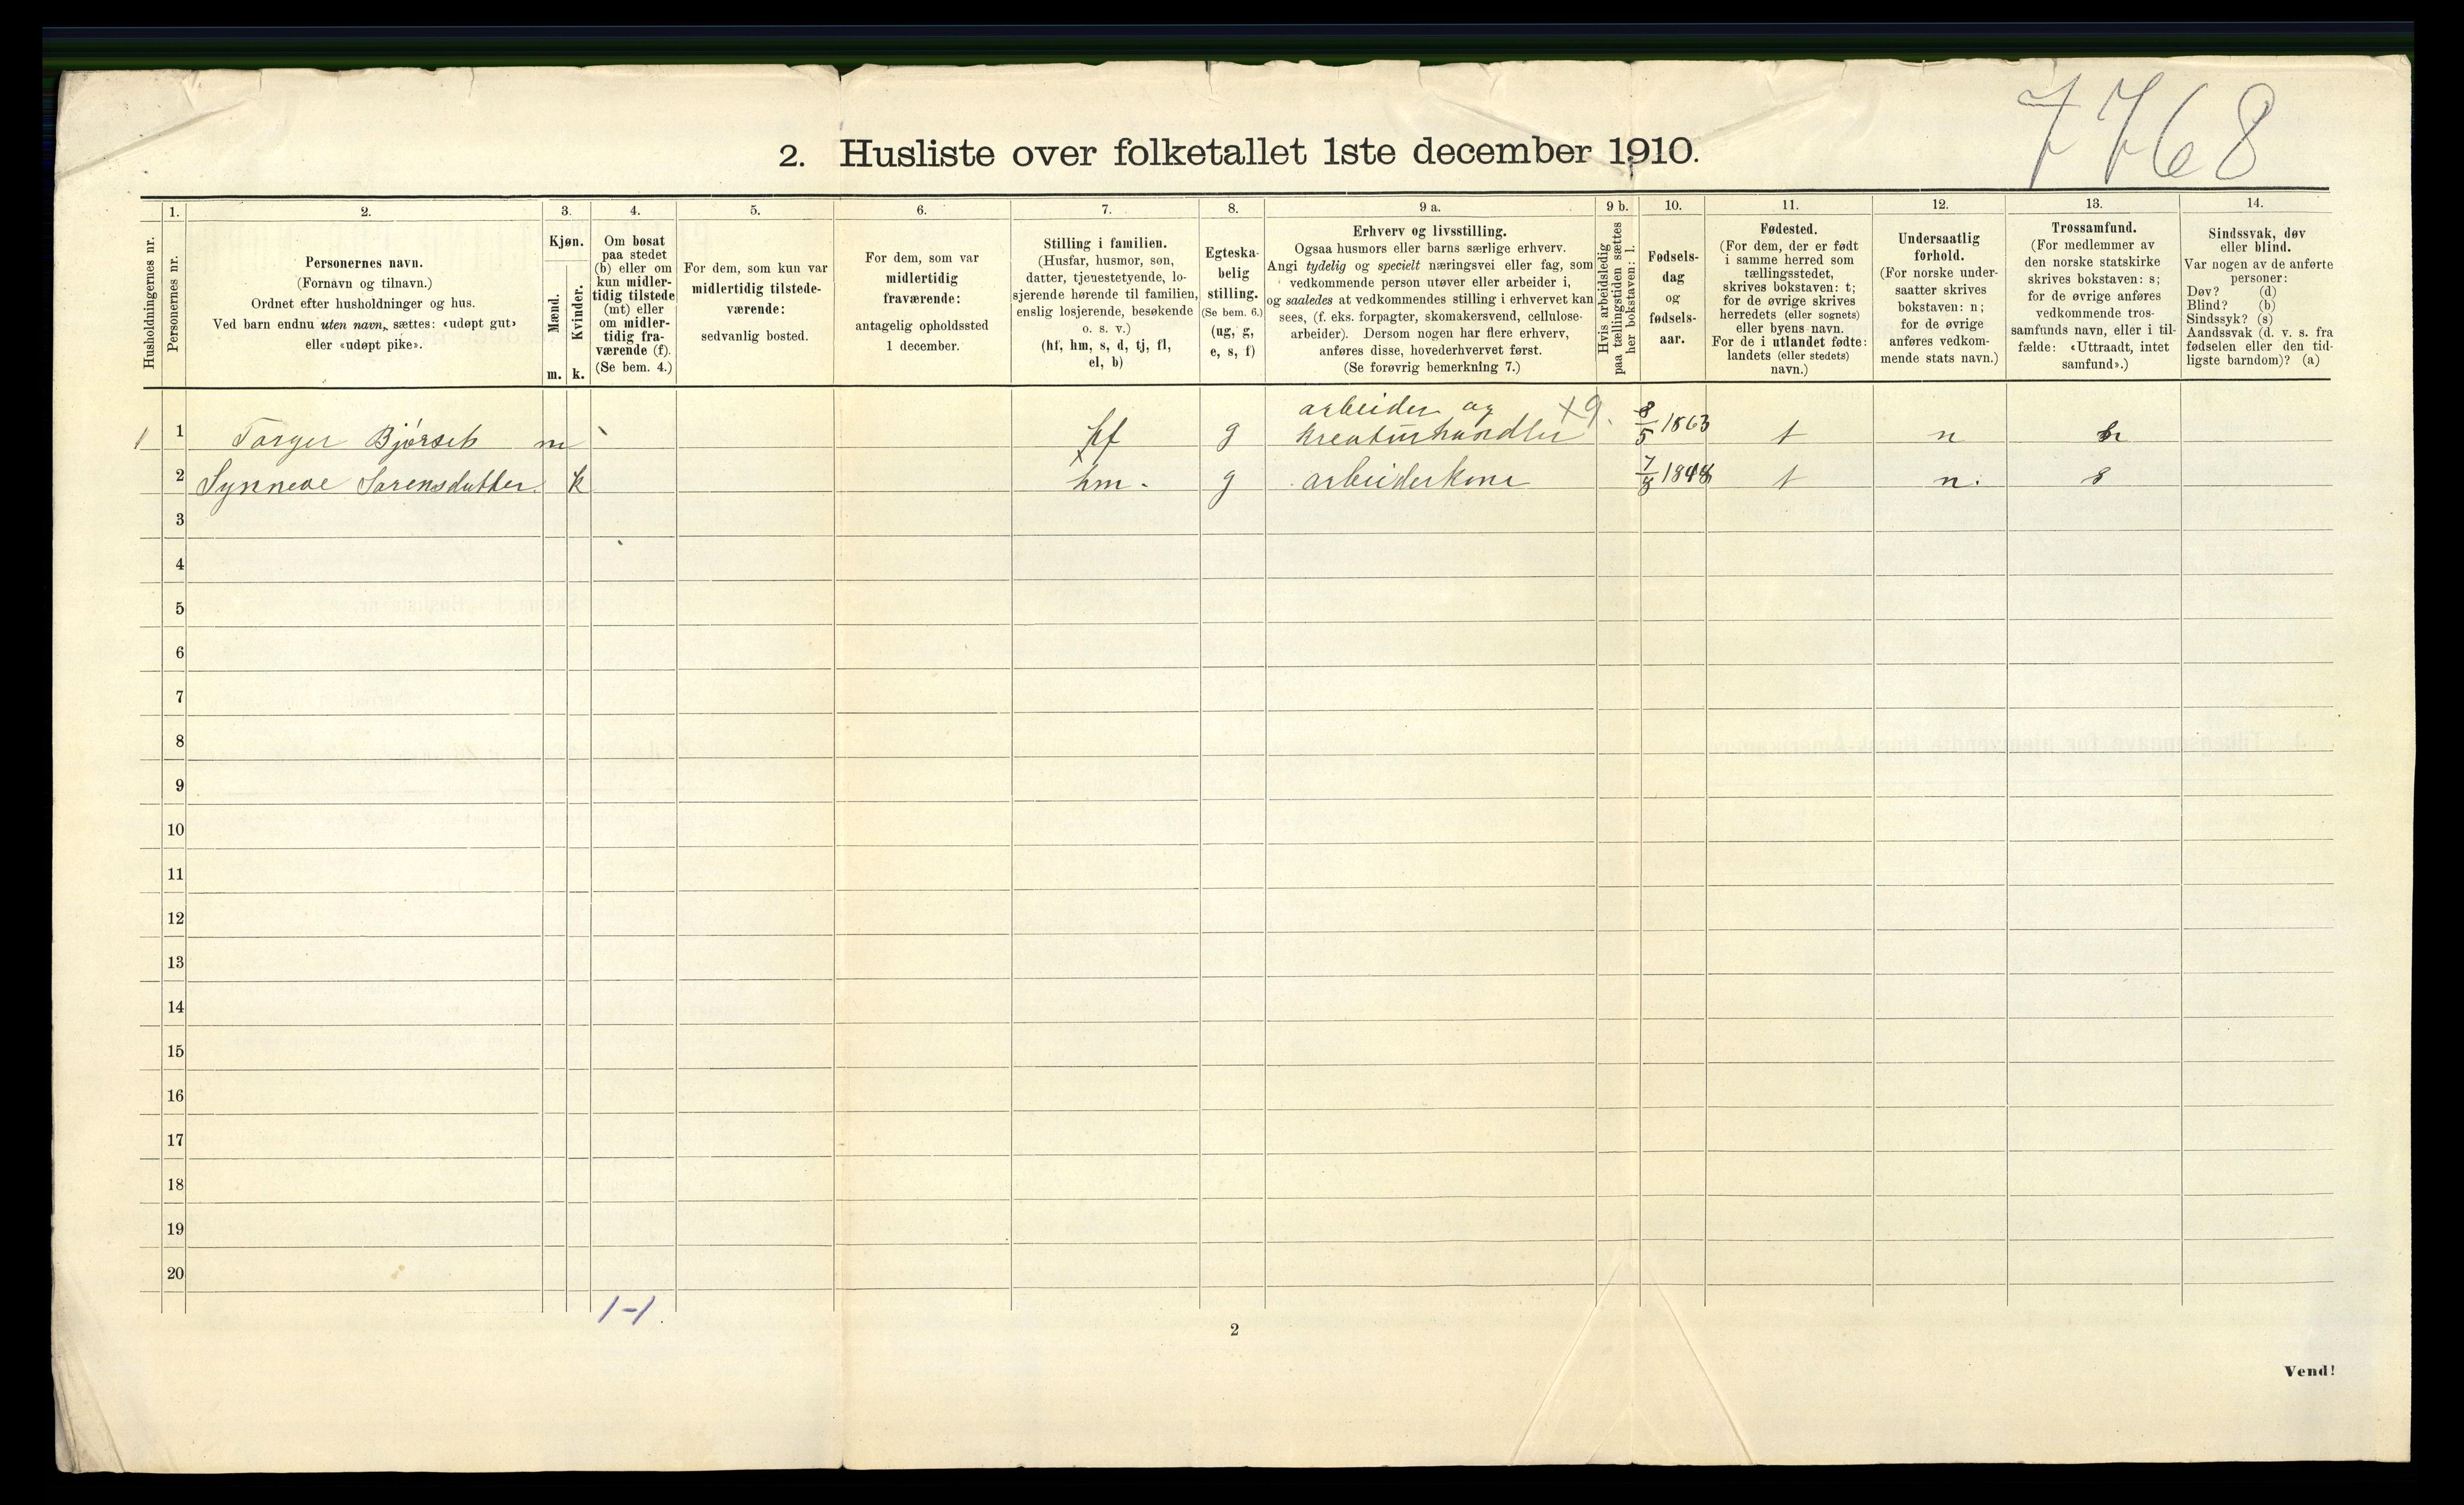 7768
2. Husliste over folketallet 1ste december 1910.
Husholdningernes nr.
1.
Personernes nr.
2.
Personernes navn.
(Fornavn og tilnavn.)
Ordnet efter husholdninger og hus.
Ved barn endnu uten navn, sættes: «udøpt gut»
eller «udøpt pike».
3.
Kjøn.
Mænd.
Kvinder.
m. k.
4.
Om bosat
paa stedet
(b) eller om
kun midler-
tidig tilstede
(mt) eller
om midler-
tidig fra-
værende (f).
(Se bem. 4.)
5.
For dem, som kun var
midlertidig tilstede-
værende:
sedvanlig bosted.
6.
For dem, som var
midlertidig
fraværende:
antagelig opholdssted
1 december.
7.
Stilling i familien.
(Husfar, husmor, søn,
datter, tjenestetyende, lo-
sjerende hørende til familien,
enslig losjerende, besøkende
o. s. v.)
(hf, hm, s, d, tj, fl,
el, b)
8.
Egteska-
belig
stilling.
(Se bem. 6.)
(ug, g,
e, s, f)
9 a.
Erhverv og livsstilling.
Ogsaa husmors eller barns særlige erhverv.
Angi tydelig og specielt næringsvei eller fag, som
vedkommende person utøver eller arbeider i,
og saaledes at vedkommendes stilling i erhvervet kan
sees, (f. eks. forpagter, skomakersvend, cellulose-
arbeider). Dersom nogen har flere erhverv,
anføres disse, hovederhvervet først.
(Se forøvrig bemerkning 7.)
9 b.
Hvis arbeidsledig
paa tællingstiden sættes
her bokstaven: l.
10.
Fødsels-
dag
og
fødsels-
aar.
11.
Fødested.
(For dem, der er født
i samme herred som
tællingsstedet,
skrives bokstaven: t;
for de øvrige skrives
herredets (eller sognets)
eller byens navn.
For de i utlandet fødte:
landets (eller stedets)
navn.)
12.
Undersaatlig
forhold.
(For norske under-
saatter skrives
bokstaven: n;
for de øvrige
anføres vedkom-
mende stats navn.)
13.
Trossamfund.
(For medlemmer av
den norske statskirke
skrives bokstaven: s;
for de øvrige anføres
vedkommende tros-
samfunds navn, eller i til-
fælde: «Uttraadt, intet
samfund».)
14.
Sindssvak, døv
eller blind.
Var nogen av de anførte
personer:
Døv? (d)
Blind? (b)
Sindssyk? (s)
Aandssvak (d. v. s. fra
fødselen eller den tid-
ligste barndom)? (a)
1 1 Torger Bjørseth m hf g arbeider og kreaturhandler x9. 8/5 1863 t n
2 Synneve Sørensdatter. k hm. g arbeiderkone 7/8 1848 t n. s
3
4
5
6
7
8
9
10
11
12
13
14
15
16
17
18
19
20
1-1.
2
Vend!